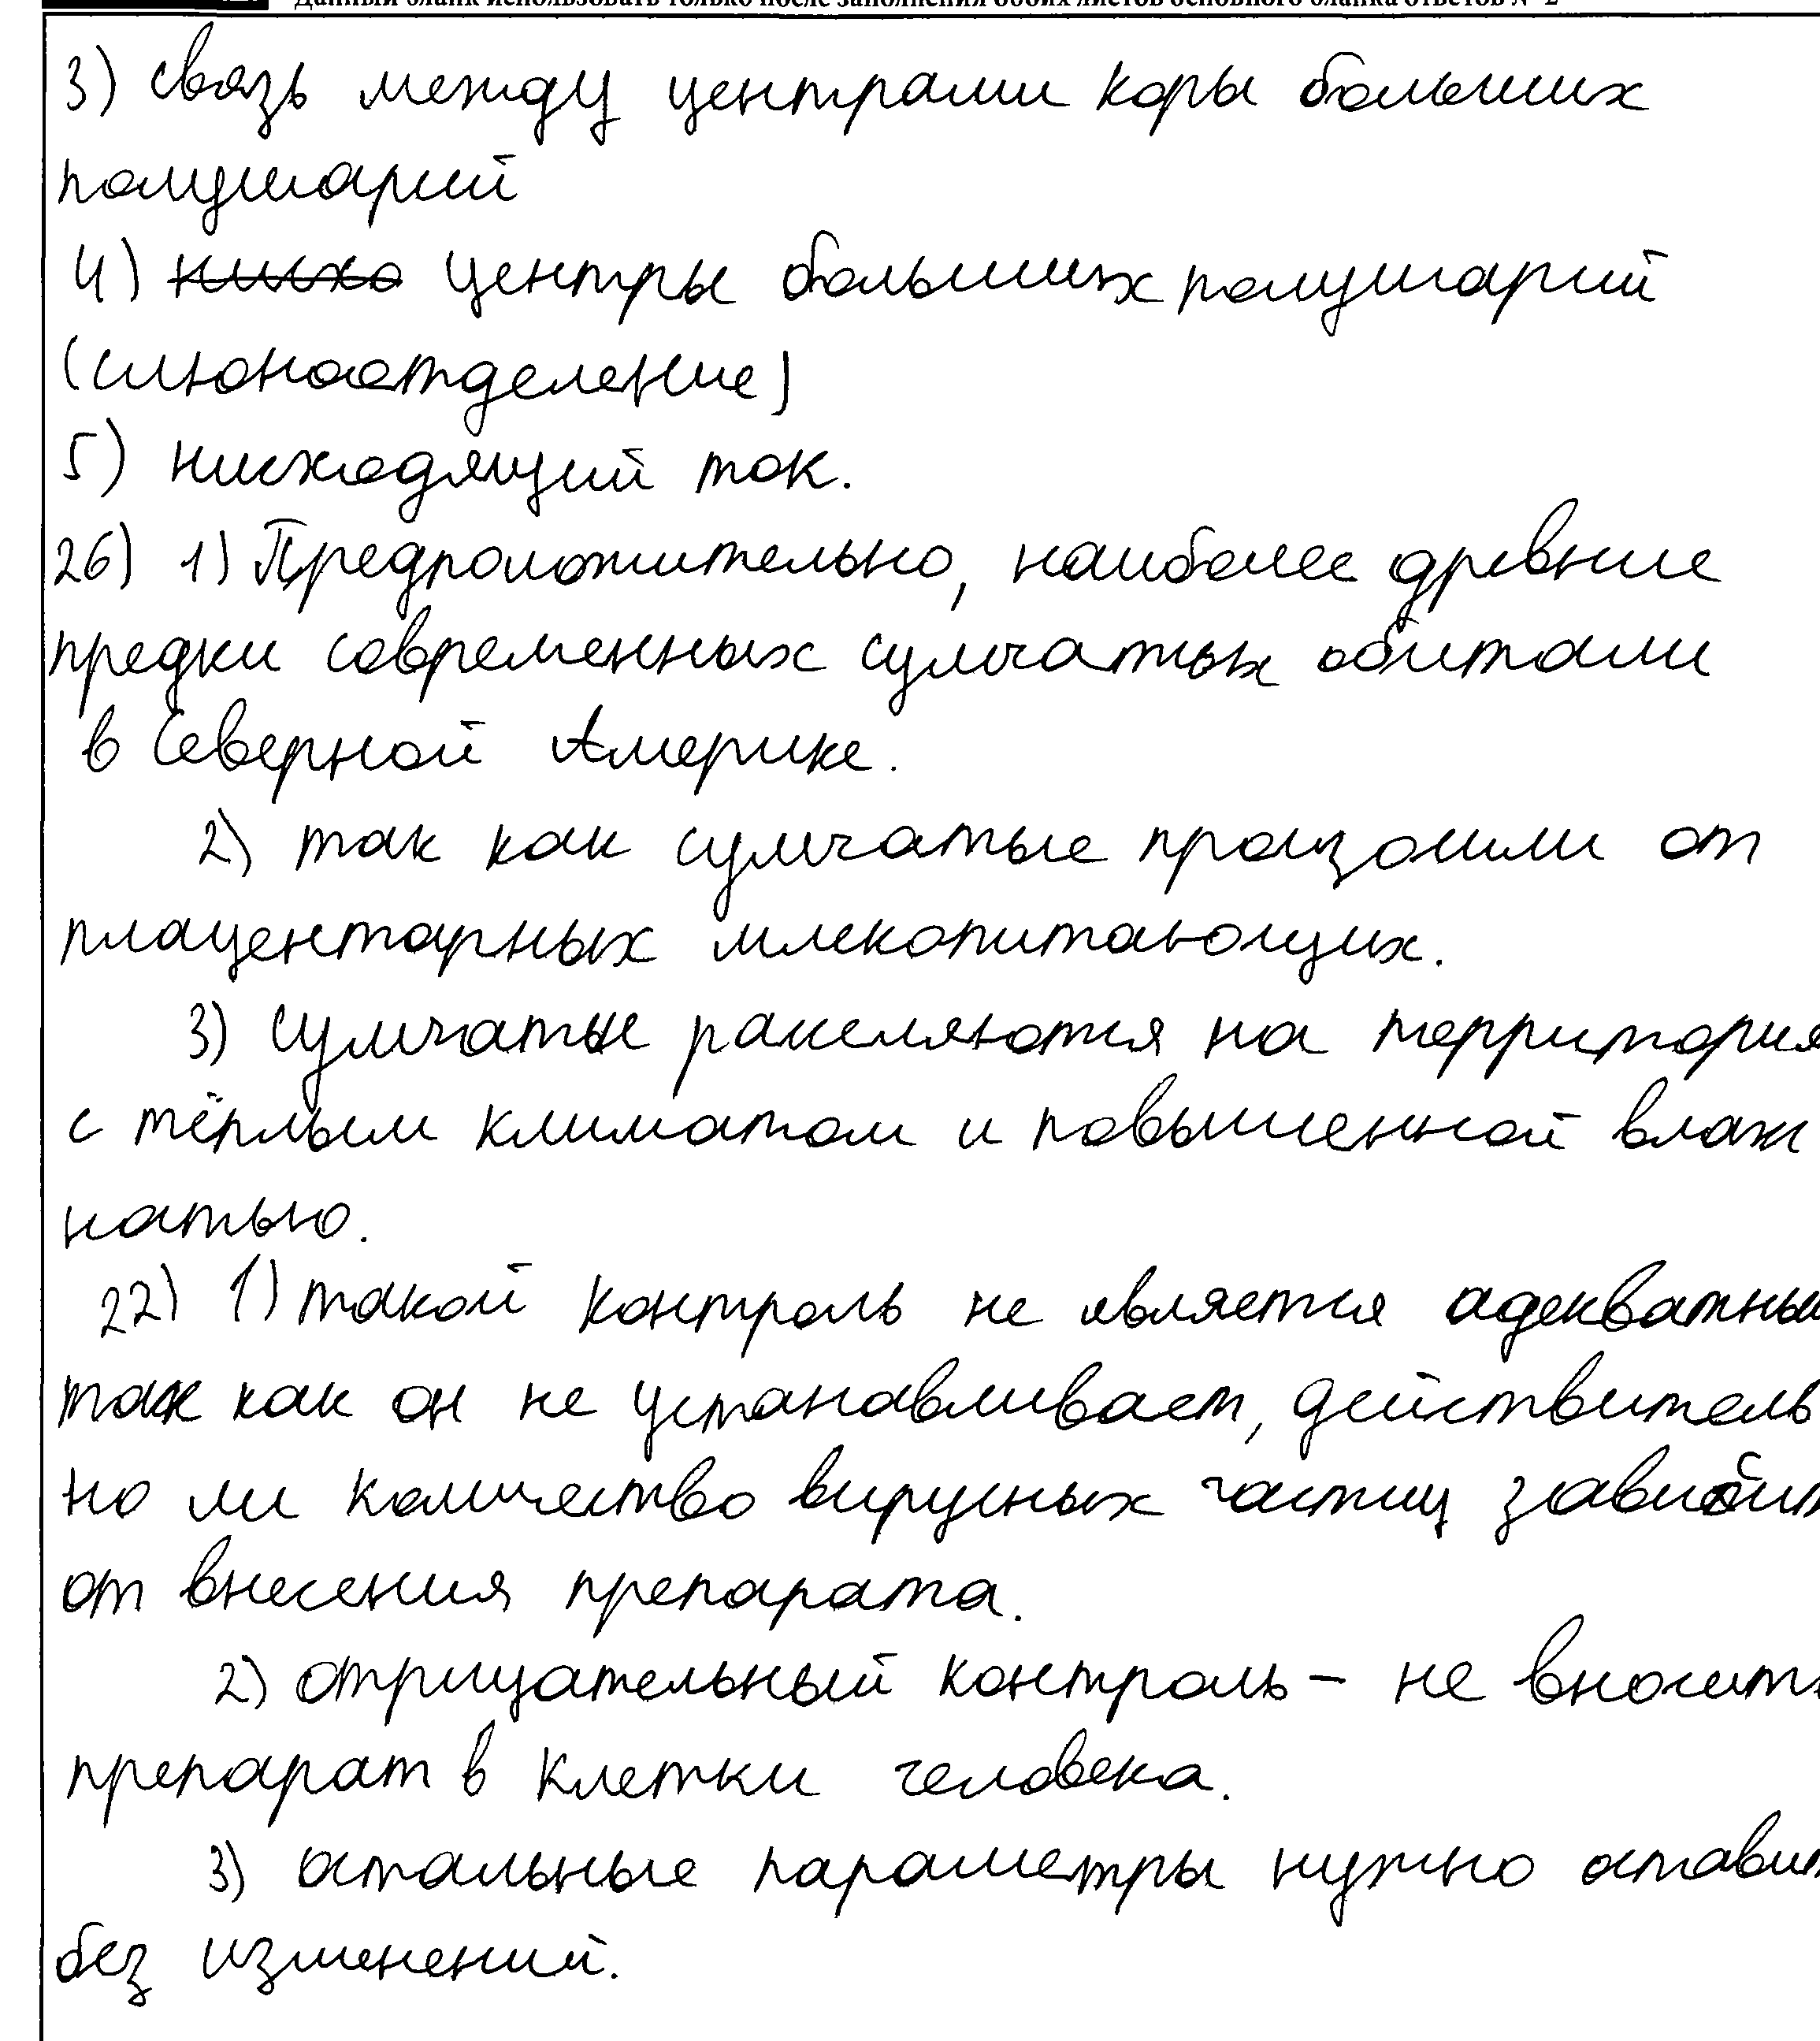 Данный бланк использовать только после заполнения обоих листов основного бланка ответов № 2
3) связь между центрами коры больших
полушарий
4) нисхо центры больших полушарий
(слюноотделение)
5) нисходящий ток.
26) 1) Предположительно, наиболее древние
предки современных сумчатых обитали
в Северной Америке.
2) так как сумчатые произошли от
плацентарных млекопитающих.
3) Сумчатые расселяются на территория
с тёплым климатом и повышенной влаж
ностью.
22) 1) такой контроль не является адекватным
так как он не устанавливает, действитель
но ли количество вирусных частиц зависит
от внесения препарата.
2) отрицательный контроль – не вносить
препарат в клетки человека.
3) остальные параметры нужно оставит
без изменений.